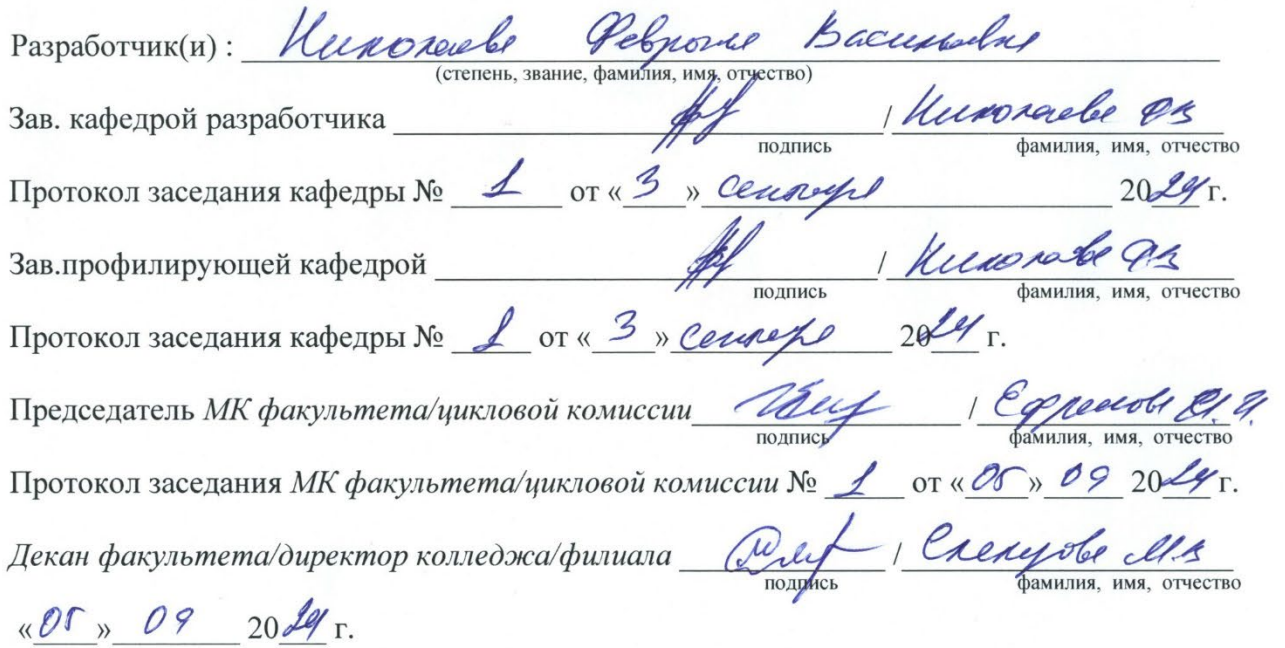 Разработчик(и) : Николаева Февронья Васильевна
(степень, звание, фамилия, имя, отчество)
Зав. кафедрой разработчика / Николаева ФВ
подпись фамилия, имя, отчество
Протокол заседания кафедры № 1 от « 3 » сентября 2024 г.
Зав.профилирующей кафедрой / Николаева ФВ
подпись фамилия, имя, отчество
Протокол заседания кафедры № 1 от « 3 » сентября 2024 г.
Председатель МК факультета/цикловой комиссии / Ефремова
подпись фамилия, имя, отчество
Протокол заседания МК факультета/цикловой комиссии № 1 от «05» 09 2024 г.
Декан факультета/директор колледжа/филиала /
подпись фамилия, имя, отчество
«05» 09 2024 г.